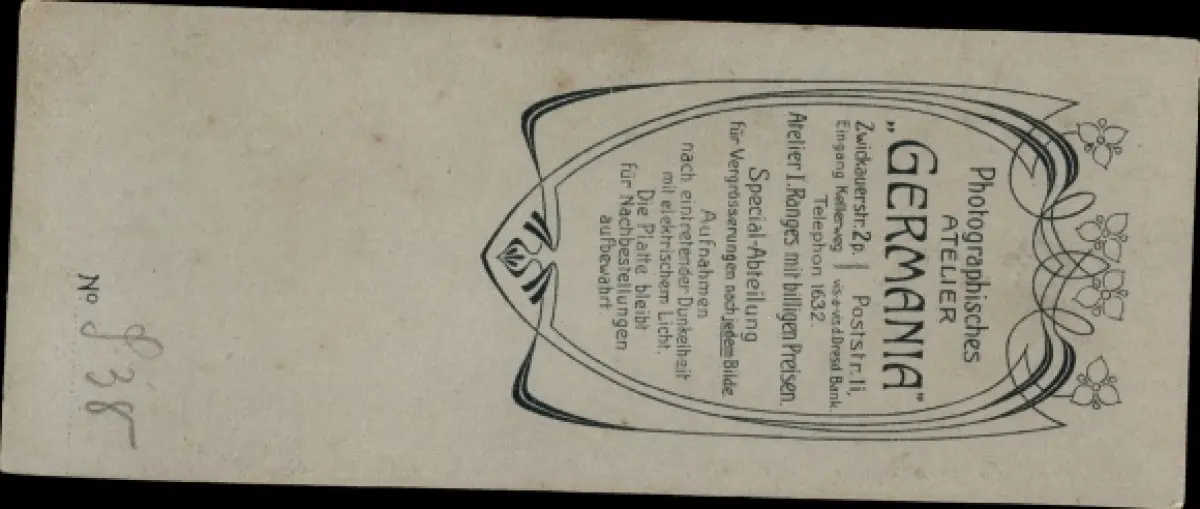 Photographisches
ATELIER
„GERMANIA”
Zwickauerstr. 2p. || Poststr. 1i,
Eingang Kellerweg || vis-a-vis d Dresd Bank
Telephon 1632.
Atelier I. Ranges mit billigen Preisen.
Special-Abteilung
für Vergrösserungen nach jedem Bilde.
Aufnahmen
nach eintretender Dunkelheit
mit elektrischem Licht.
Die Platte bleibt
für Nachbestellungen
aufbewahrt.
No 838